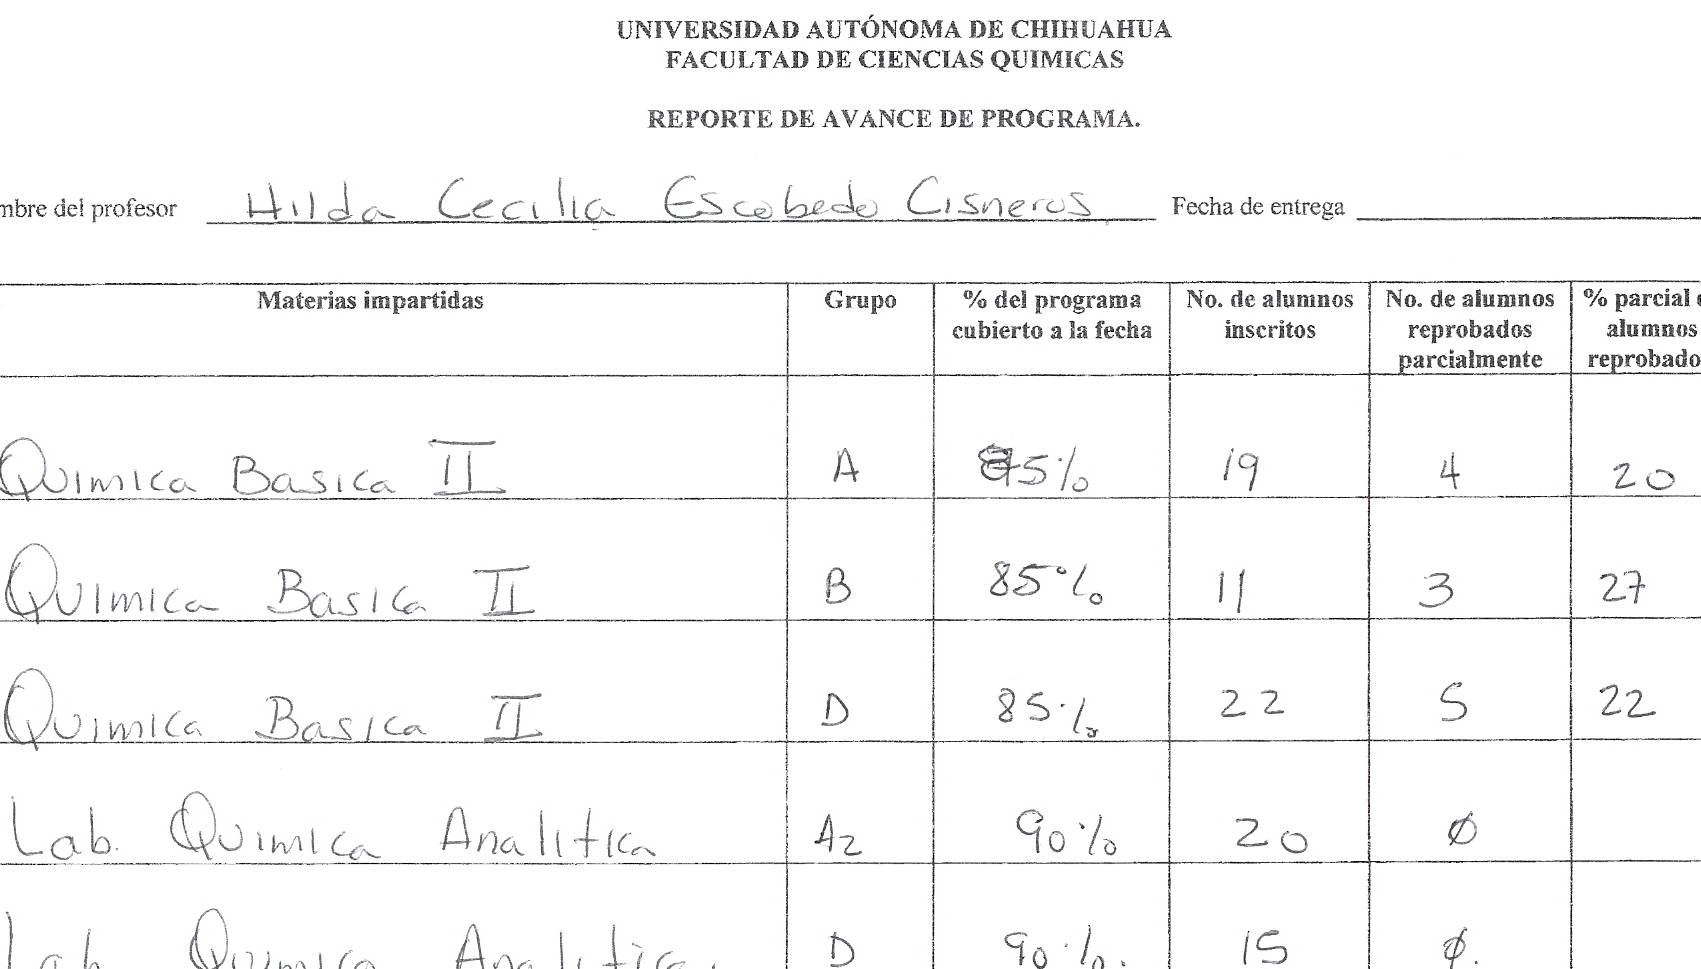 UNIVERSIDAD AUTÓNOMA DE CHIHUAHUA
FACULTAD DE CIENCIAS QUIMICAS
REPORTE DE AVANCE DE PROGRAMA.
mbre del profesor Hilda Cecilia Escobedo Cisneros Fecha de entrega
Materias impartidas Grupo % del programa cubierto a la fecha No. de alumnos inscritos No. de alumnos reprobados parcialmente % parcial alumnos reprobado
Quimica Basica II A 85% 19 4 20
Quimica Basica II B 85% 11 3 27
Quimica Basica II D 85% 22 5 22
Lab. Quimica Analitica A2 90% 20 Ø
Lab Quimica Analitica. D 90%. 15 Ø.